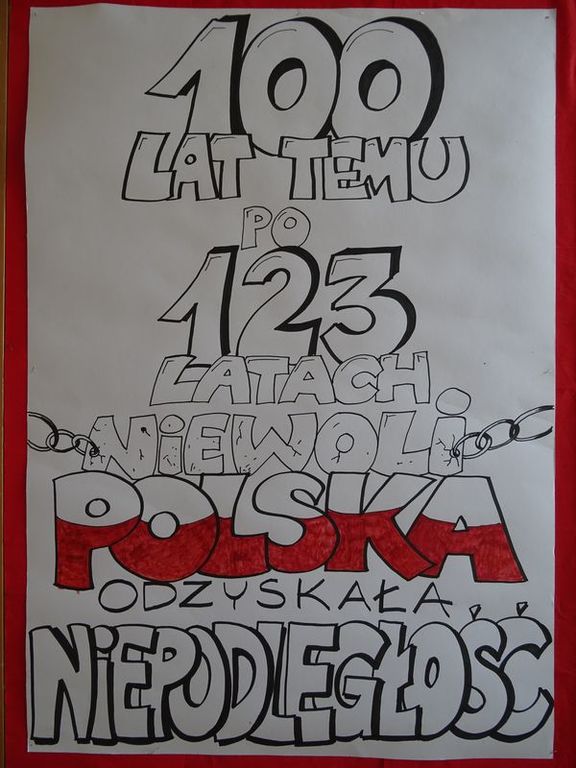 100
LAT TEMU
PO
123
LATACH
NiEWOLi
POLSKA
ODZYSKAŁA
NiEPODLEGŁOŚĆ